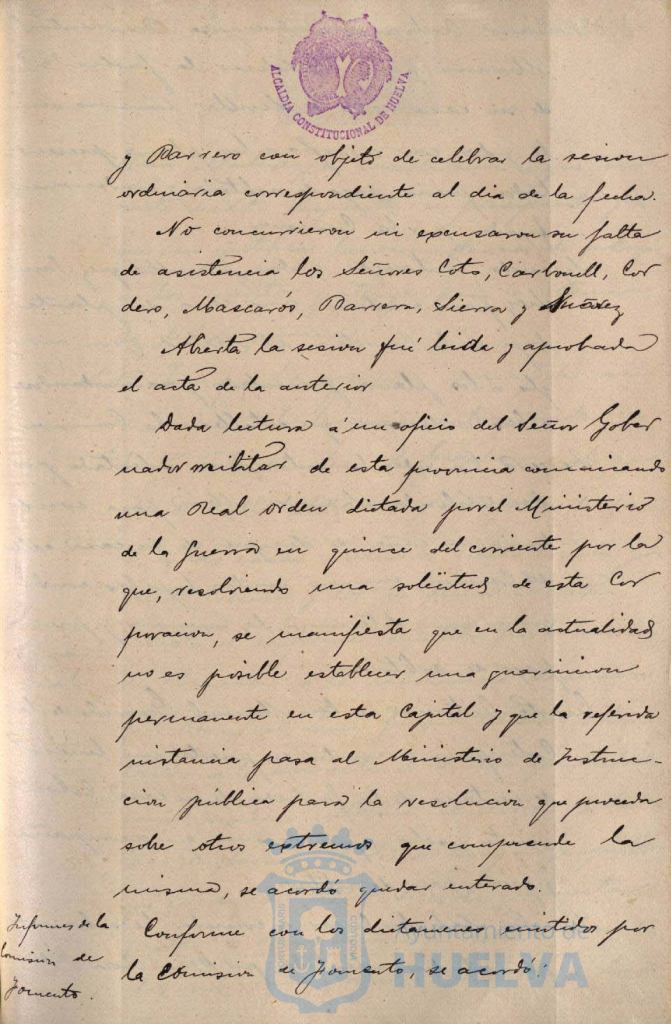 ALCALDIA CONSTITUCIONAL DE HUELVA
y Barrero con objeto de celebrar la sesion
ordinaria correspondiente al dia de la fecha.
No concurrieron ni excusaron su falta
de asistencia los Señores Coto, Carbonell, Cor
dero, Mascarós, Barrera, Sierra y Suárez
Abierta la sesion fué leida y aprobada
el acta de la anterior
Dada lectura á un oficio del Señor Gober
nador militar de esta provincia comunicando
una Real orden dictada por el Ministerio
de la Guerra en quince del corriente por la
que, resolviendo una solicitud de esta Cor
poracion, se manifiesta que en la actualidad
no es posible establecer una guarnicion
permanente en esta Capital y que la referida
instancia pasa al Ministerio de Instruc-
cion pública para la resolucion que proceda
sobre otros extremos que comprende la
misma, se acordó quedar enterado.
Informes de la
Comisión de
Fomento.
Conforme con los dictámenes emitidos por
la Comision de Fomento, se acordó:
Ayuntamiento de
HUELVA